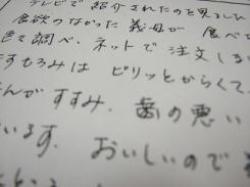 テレビで紹介されたのを見まして
食欲のなかった義母が 食べ
色々調べ、ネットで注文し
すもろみは ピリッとからくて、
んが すすみ、歯の悪い
います。 おいしいので